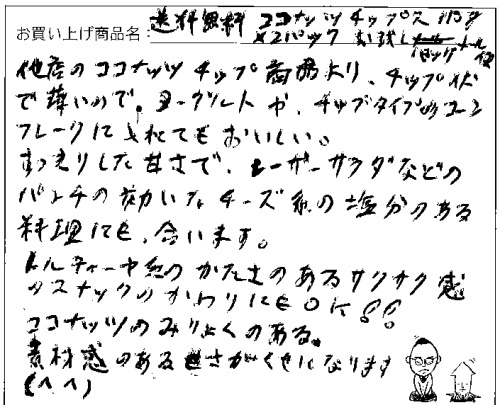 お買い上げ商品名: 送料無料 ココナッツ チップス
×2パック お試し メール便
他店のココナッツ チップ商品より、チップ状
で薄いので、ヨーグルトや、チップタイプのコーン
フレークに入れてもおいしい。
すっきりした甘さで、シーザーサラダなどの
パンチの効いたチーズ系の塩分のある
料理にも、合います。
トルティーヤ系のかたさのあるサクサク感
のスナックのかわりにもOK!!
ココナッツのみりょくのある。
素材感のある甘さがくせになります
(^^)